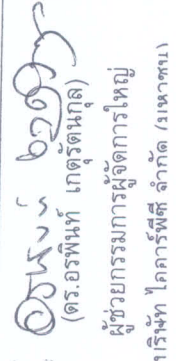 (ดร.อรพินท์ เกตุรัตนกุล)
ผู้ช่วยกรรมการผู้จัดการใหญ่
บริษัท ไออาร์พีซี จำกัด (มหาชน)